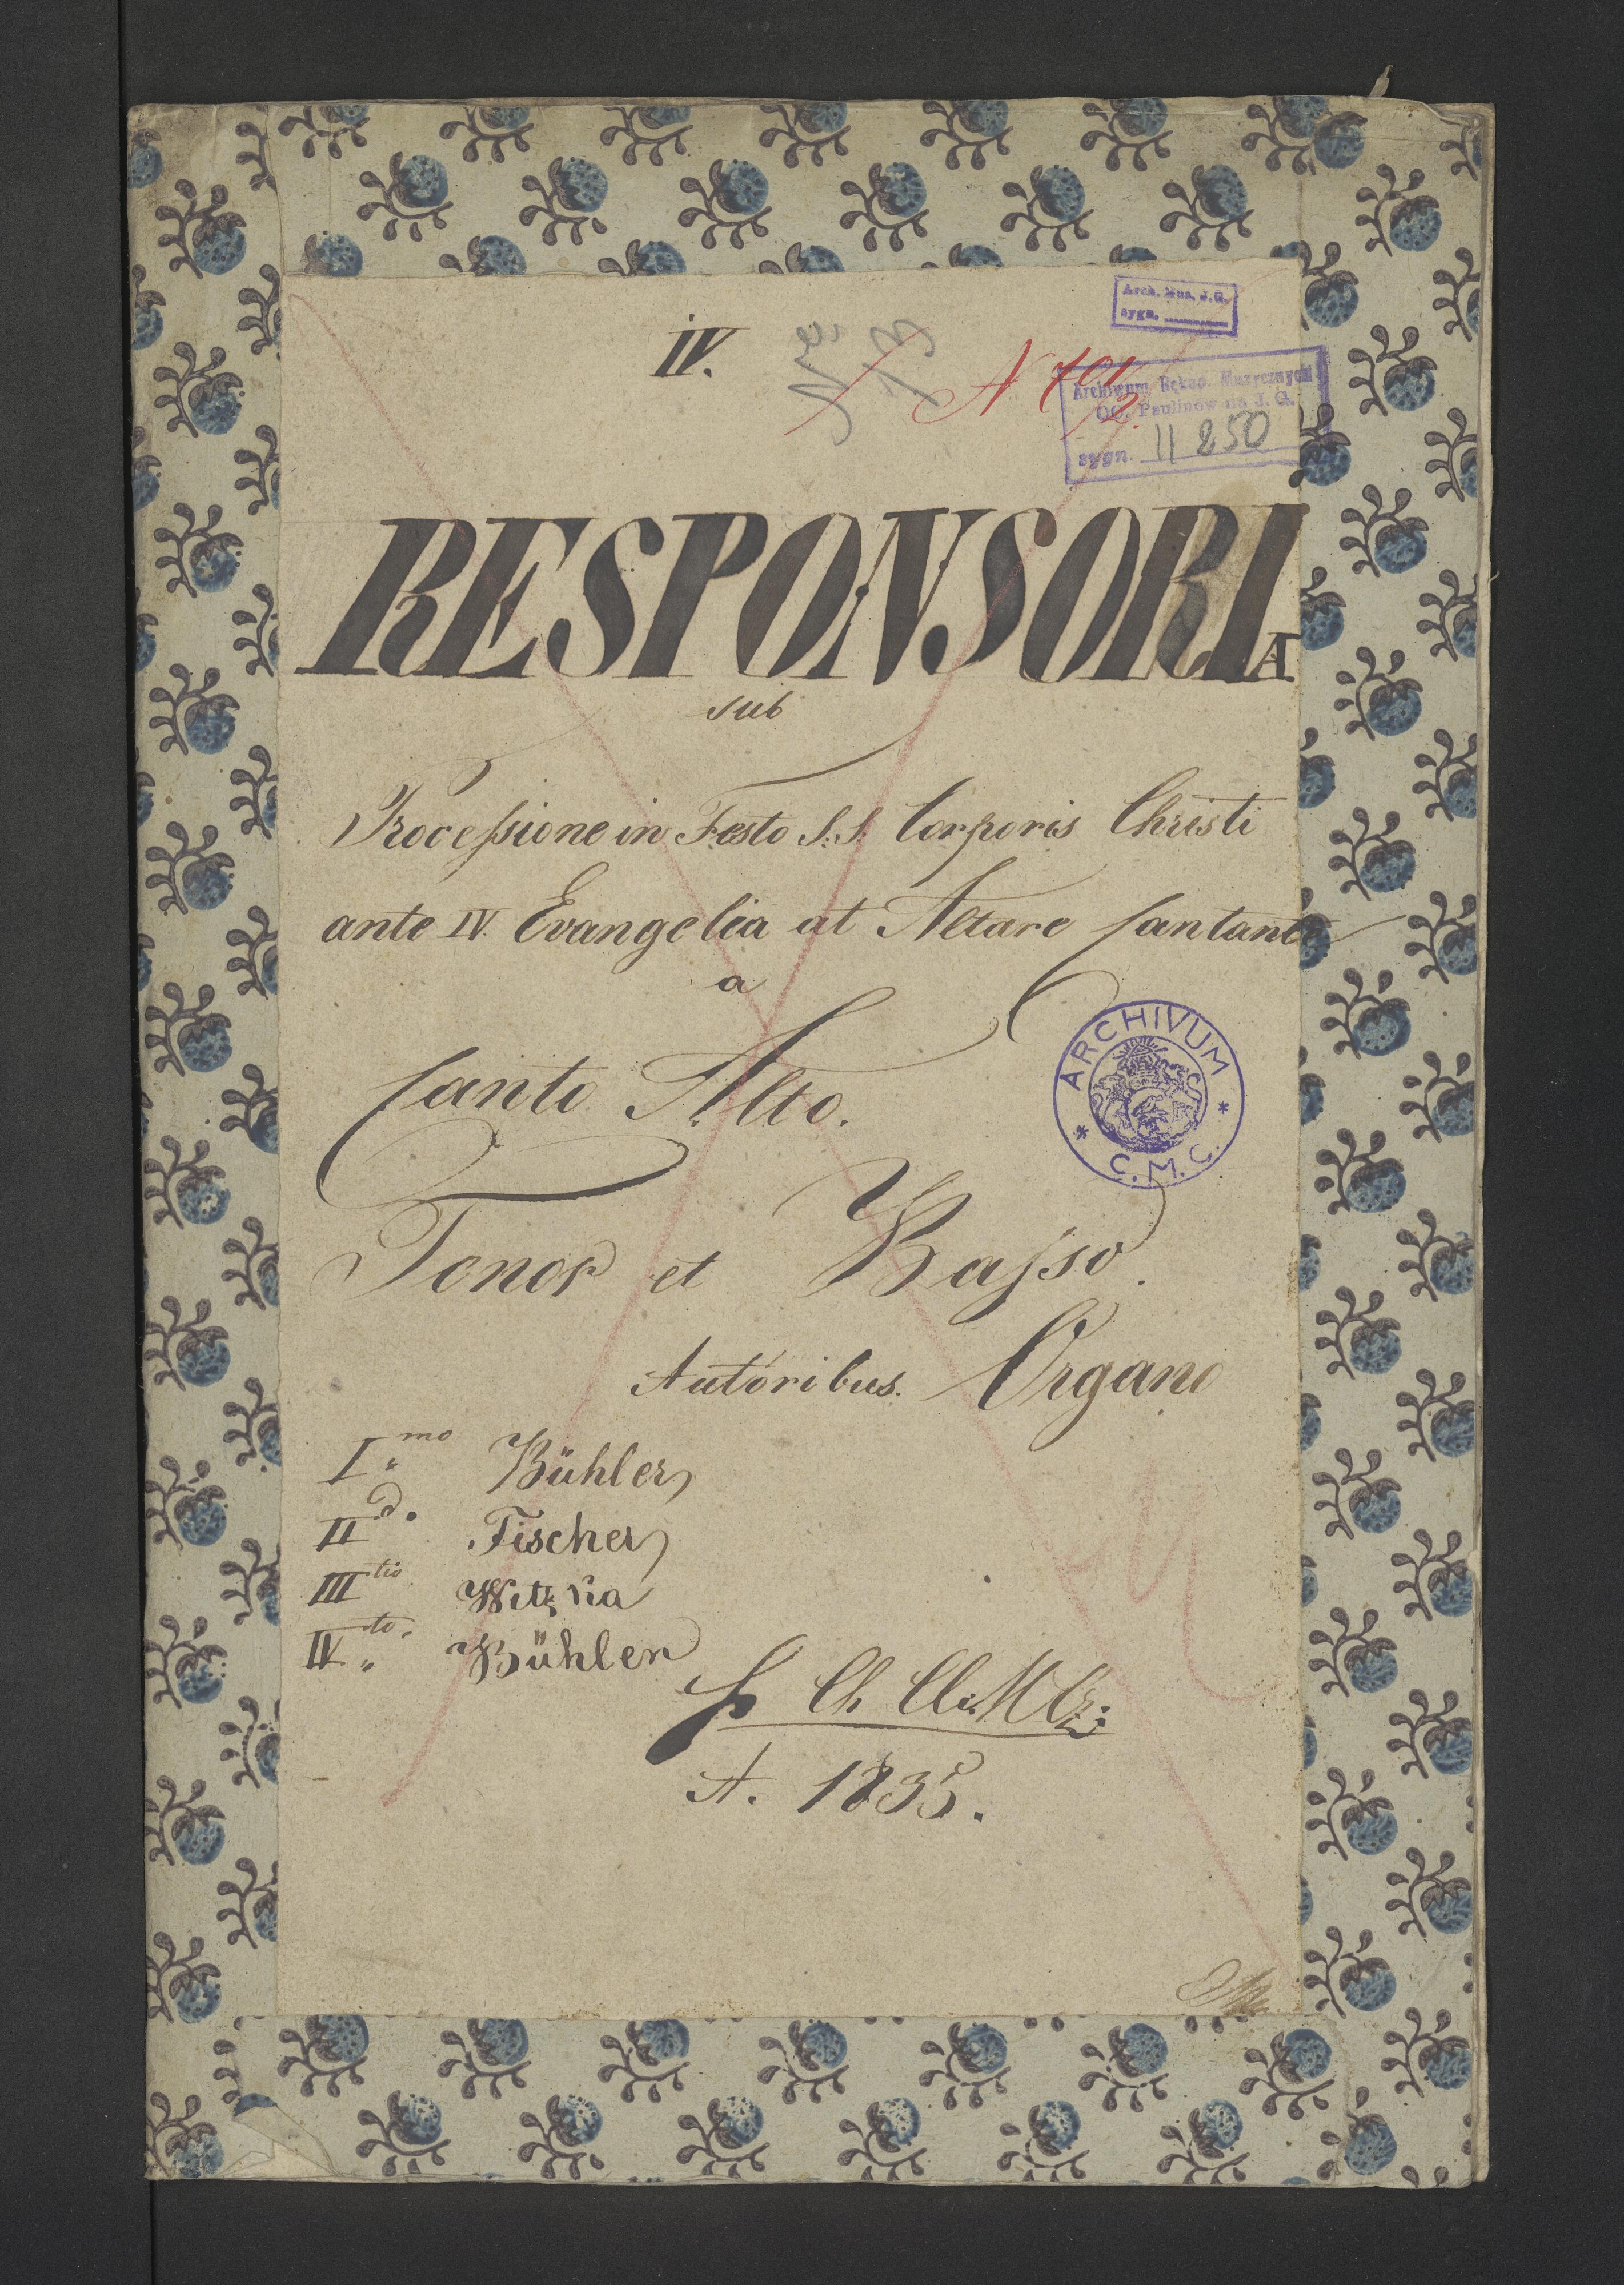 Arch. Mus. J.G.
sygn.
IV.
N 701/2
Archiwum Rękop. Muzycznych
OO. Paulinów na J. G.
sygn. II 250
RESPONSORIA
sub
Processione in Festo S:S: Corporis Christi
ante IV Evangelia at Altare Cantant
a
Canto Alto.
ARCHIVUM
C.M.C.
Tenor et Basso.
Autoribus. Organo
I mo Bühler
II d. Fischer
III tio Witzka
IV to. Bühler
A. 1835.